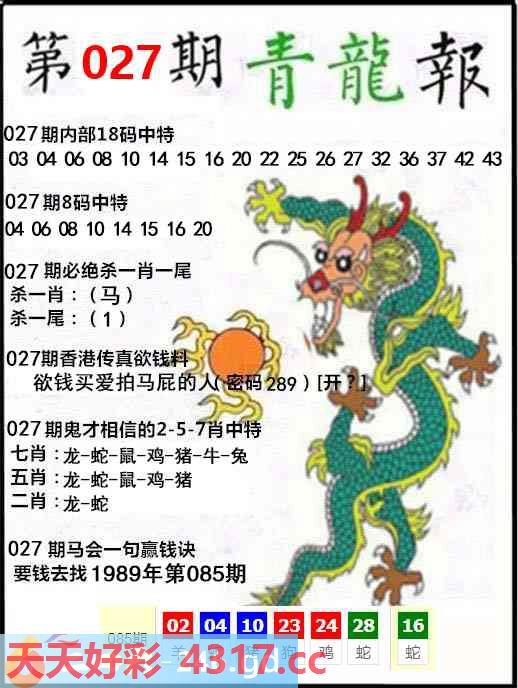 第027期青龍報
027期内部18码中特
03 04 06 08 10 14 15 16 20 22 25 26 27 32 36 37 42 43
027期8码中特
04 06 08 10 14 15 16 20
027 期必绝杀一肖一尾
杀一肖：（马）
杀一尾：（1）
027期香港传真欲钱料
欲钱买爱拍马屁的人（密码289）[开？]
027期鬼才相信的2-5-7肖中特
七肖：龙-蛇-鼠-鸡-猪-牛-兔
五肖：龙-蛇-鼠-鸡-猪
二肖：龙-蛇
027 期马会一句赢钱诀
要钱去找 1989年第085期
085期 02 04 10 23 24 28 16
羊 猪 狗 鸡 蛇 蛇
天天好彩 4317.cc